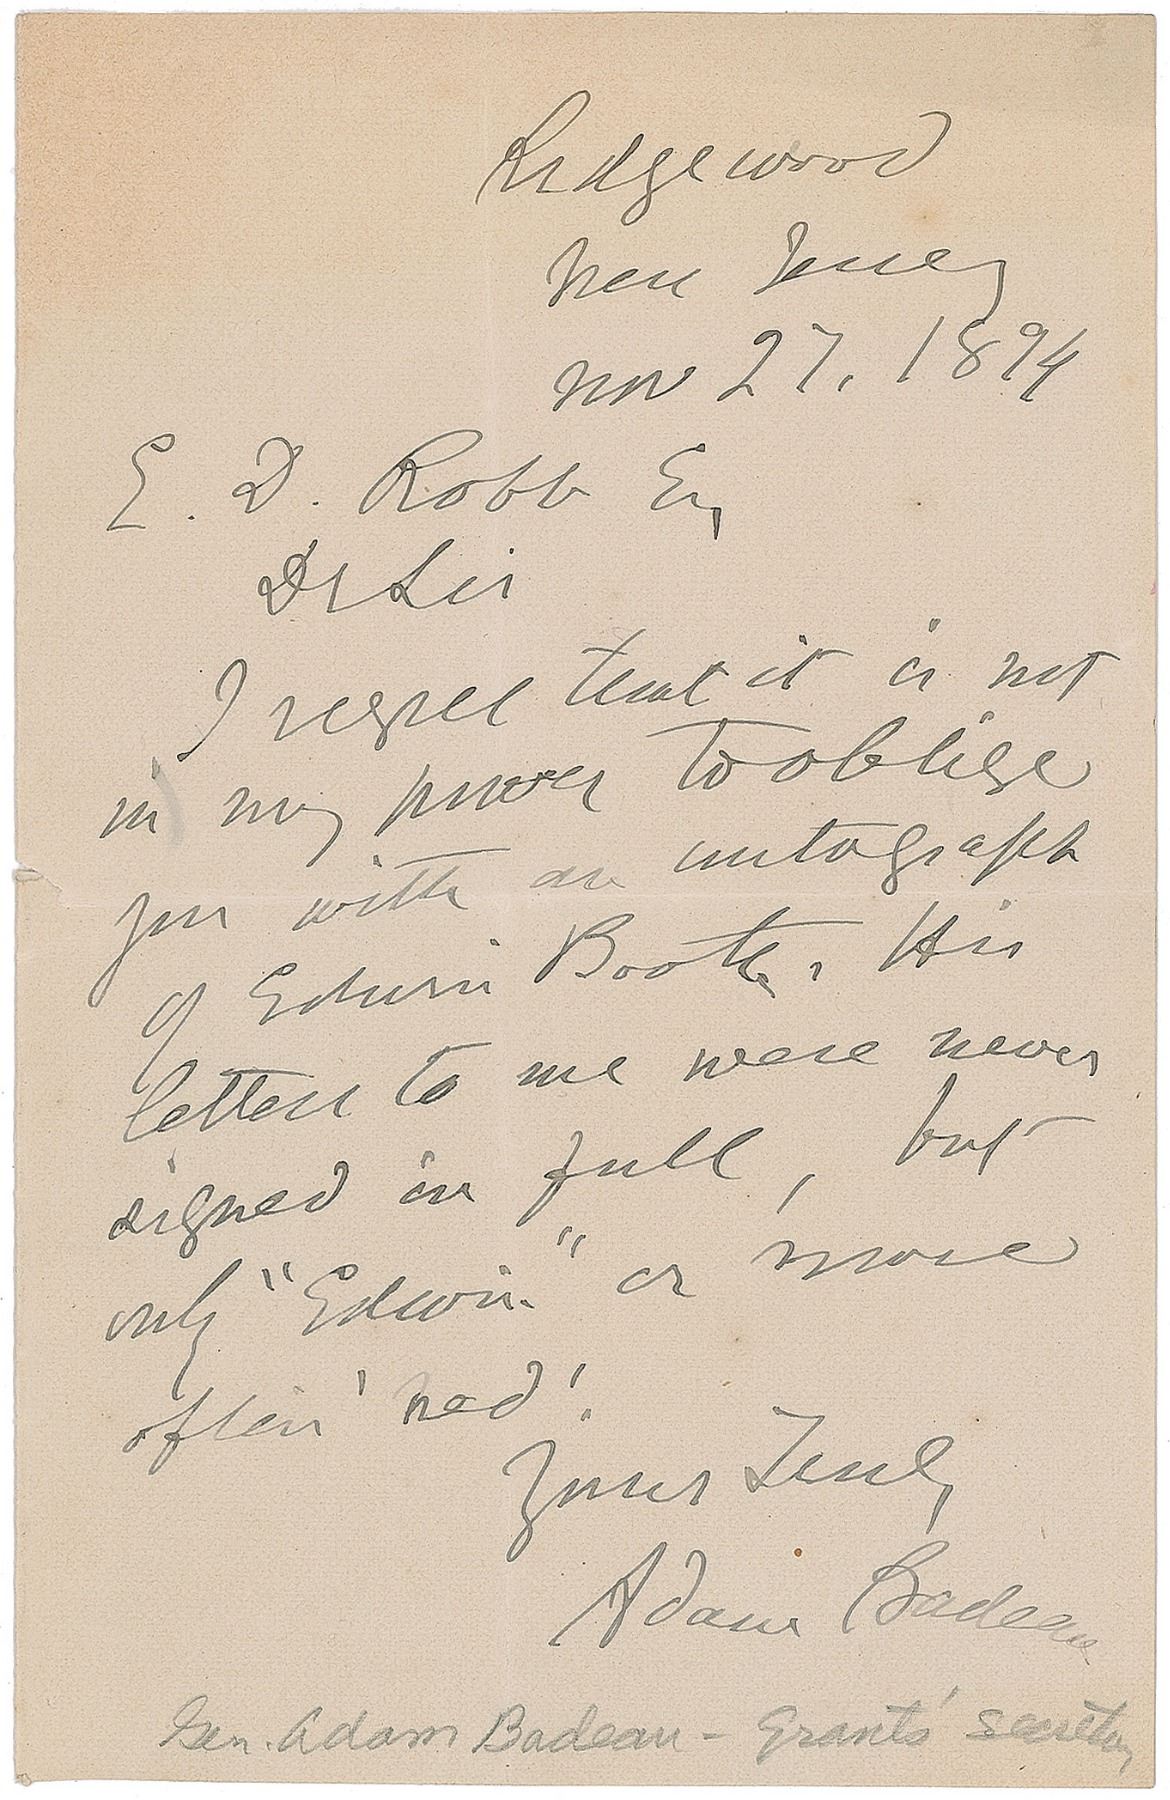 Ridgewood
New Jersey
Nov 27. 1894
E. D. Robb Esq
Dr Sir
I regret that it is not
in my power to oblige
you with an autograph
of Edwin Booth. His
letters to me were never
signed in full, but
only "Edwin" or more
often 'Ned'.
Yours Truly
Adam Badeau
Gen. Adam Badeau - Grant's secretary